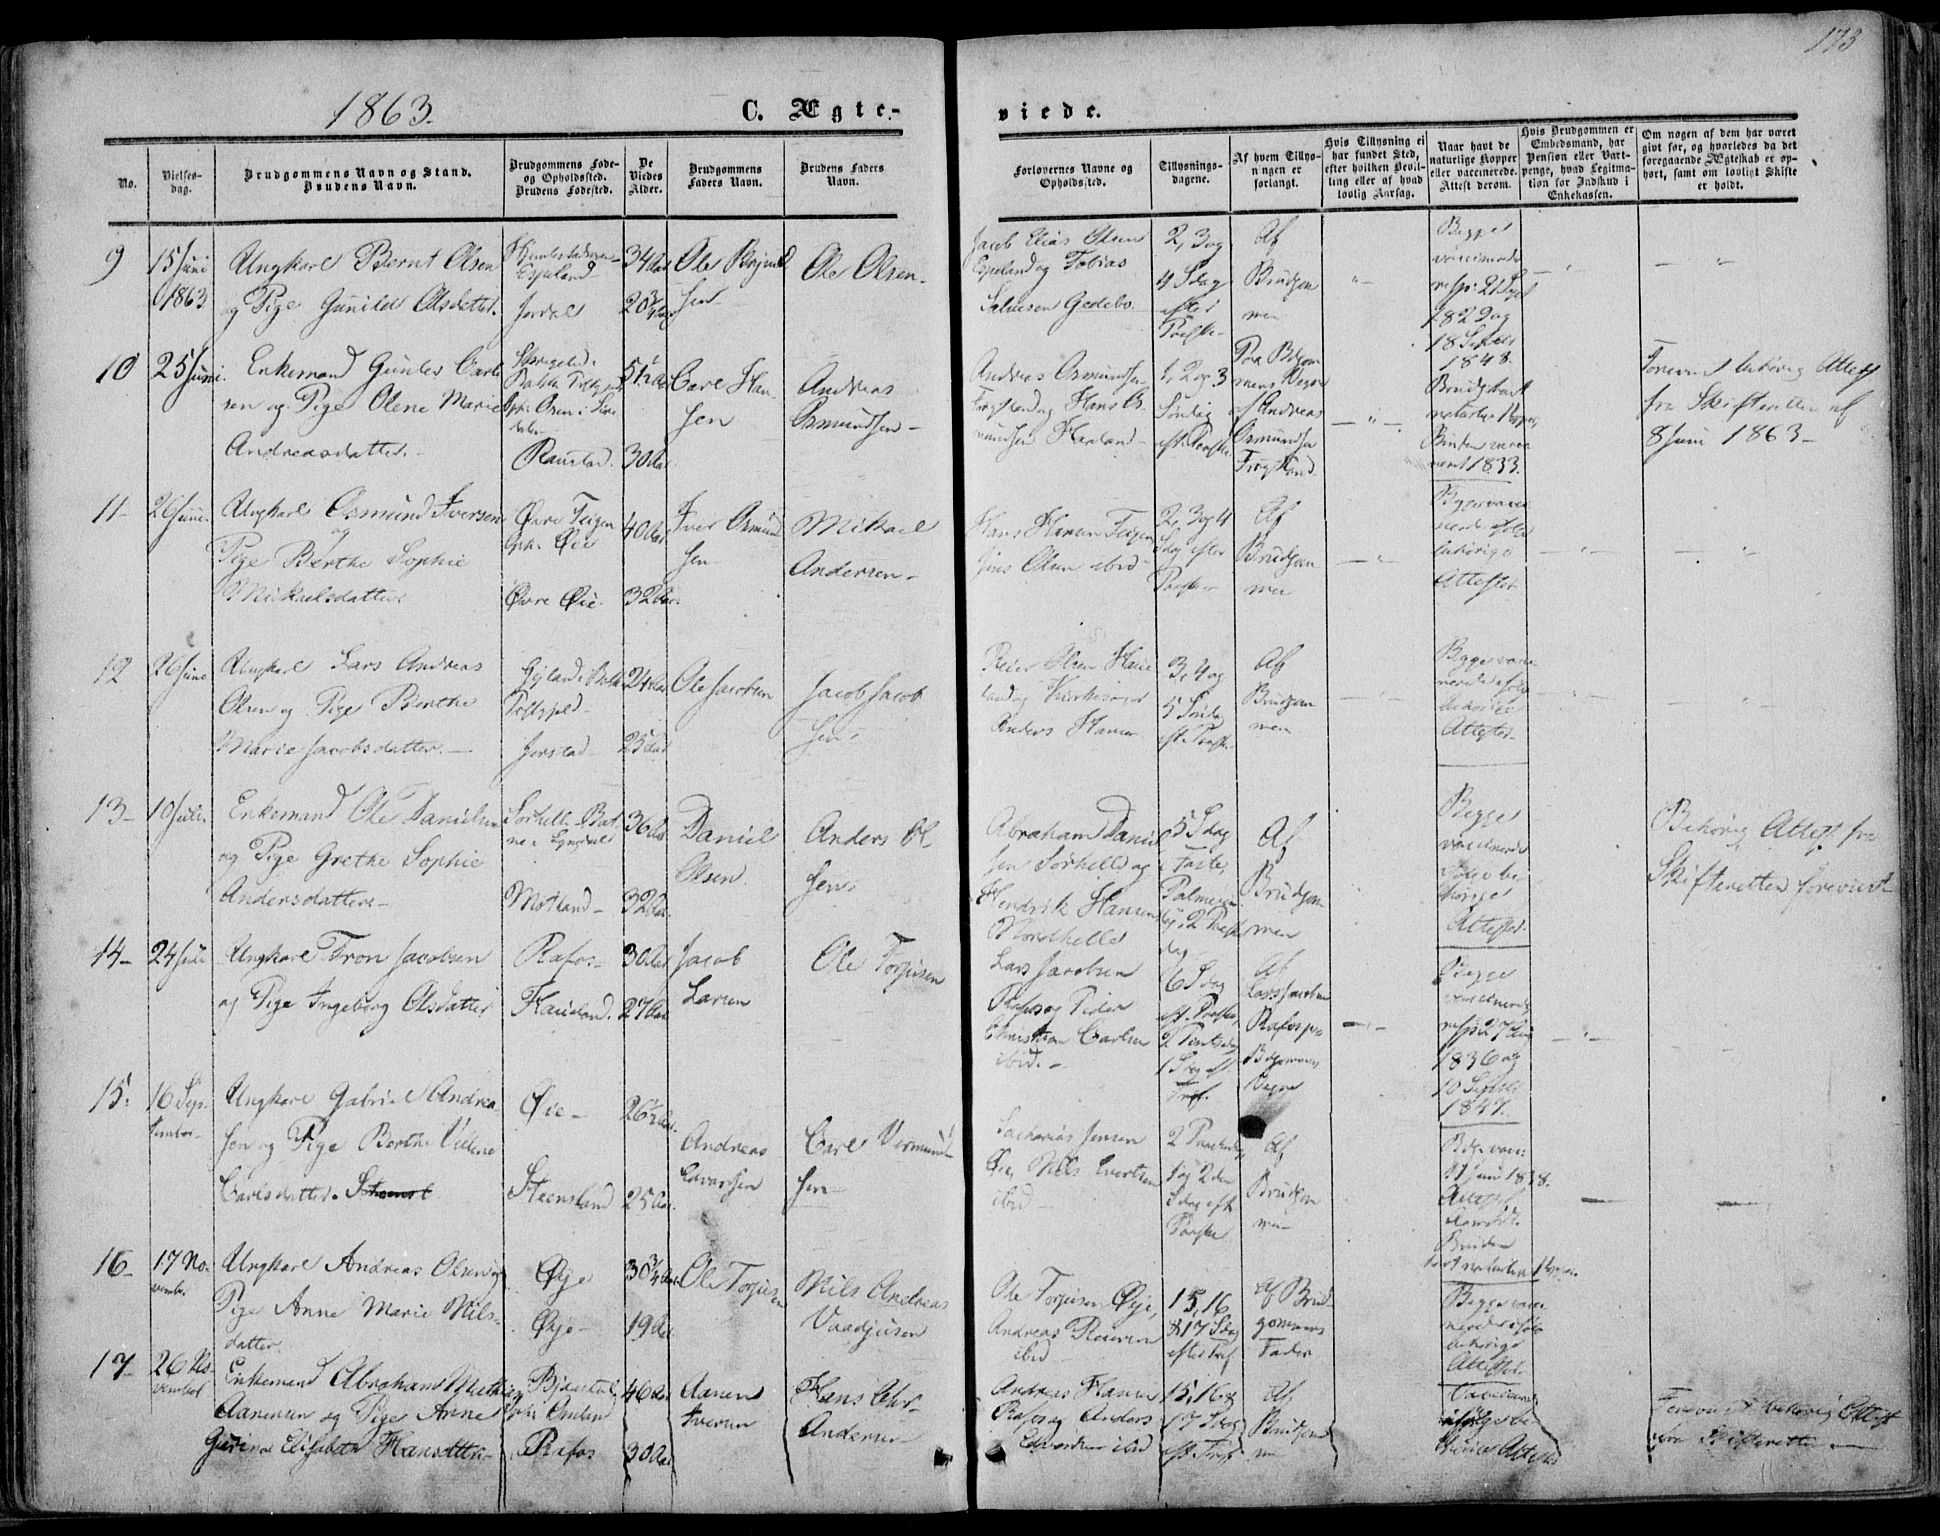 173
1863.
C. Ægte-
viede.
No.
Vielses-
dag.
Brudgommens Navn og Stand.
Brudens Navn.
Brudgommens Føde-
og Opholdssted.
Brudens Fødested.
De
Viedes
Alder.
Brudgommens
Faders Navn.
Brudens Faders
Navn.
Forlovernes Navne og
Opholdssted.
Tillysnings-
dagene.
Af hvem Tillys-
ningen er
forlangt.
Hvis Tillysning ei
har fundet Sted,
efter hvilken Bevil-
ling eller af hvad
lovlig Aarsag.
Naar havt de
naturlige Kopper
eller vaccinerede.
Attest derom.
Hvis Brudgommen er
Embedsmand, har
Pension eller Vart-
penge, hvad Legitima-
tion for Indskud i
Enkekassen.
Om nogen af dem har været
gift før, og hvorledes da det
foregaaende Ægteskab er op-
hørt, samt om lovligt Skifte
er holdt.
9
15 Juni
1863
Ungkarl Bernt Olsen
og Pige Gunild Olsdatter.
Espeland
Jerdal
34 Aar
20 3/4 Aar
Ole
Ole Olsen.
Jacob Elias Olsen
Espeland og Tobias
Salvesen Gedebo.
2, 3 og
4 Sdag
efter
Paaske.
Af
Brudgom
men
Begge
vaccinerede
resp. 21 Sept
1829 og
18 Septbr
1848.
10
25 Juni.
Enkemand Gunder Carl
sen og Pige Olene Marie
Andreasdatter.
Bakke
Opht. Osen i Sire
dalen
Raustad.
51 1/2 Aar
30 Aar
Carl Han
sen
Andreas
Osmundsen
Andreas Osmundsen
Frøgstad og Hans Os
mundsen Haaland
1, 2 og 3
Søndag
eft. Paaske.
Paa Bdgom
mens Vegne
af Andreas
Osmundsen
Frøgstad.
Brudg. havt
naturlige Kopper,
Bruden vacci
neret 1833.
Forevist behørig Attest
fra Skifteretten af
8 Juni 1863
11
26 Juni.
Ungkarl Osmund Iversen
og
Pige Berthe Sophie
Mikaelsdatter.
Øvre Teigen
Opht. Øie
Øvre Øie.
40 Aar
32 Aar.
Iver Osmund
sen
Mikael
Andersen
Hans Hansen Teigen
Jens Olsen ibid
2, 3 og 4
Sdag efter
Paaske
Af
Brudgom
men
Begge vacci
nerede ifølge
behørige
Attester
12
26 Juni
Ungkarl Lars Andreas
Olsen og Pige Berthe
Marie Jacobsdatter.
Gyland i Bakke
Præstgjeld
Jerstad
24 Aar
25 Aar
Ole Jacobsen
Jacob Jacob
sen.
Reier Olsen Haue
land og Kirkesanger
Anders Hansen
3, 4 og
5 Søndag
eft. Paaske.
Af
Brudgom
men
Begge vacci
nerede ifølge
behørige
Attester
13
10 Juli.
Enkemand Ole Danielsen
og Pige Grethe Sophie
Andersdatter.
Sørhelle
Motland
36 Aar
32 Aar.
Daniel
Olsen.
Anders Ol
sen.
Abraham Daniel
sen Sørhelle og
Hendrik Hansen
Nordhelle
5 Sdag
i Faste,
Palmesøn
dag, 2 Paaske
dag
Af
Brudgom
men
Begge
vaccinerede
ifølge be
hørige
Attester
Behørig Attest fra
Skifteretten forevist
14
24 Juli
Ungkarl Tron Jacobsen
og Pige Ingeborg Olsdatter
Rafos.
Haueland.
30 Aar
27 Aar
Jacob
Larsen
Ole Torjusen
Lars Jacobsen
Rafos og Peder
Christian Carlsen
ibid.
6 Sdag
eft. Paaske,
2 Pintsedag
1 Sdag eft.
Tref.
Af
Lars Jacobsen
Rafos paa
Bdgommens
Vegne
Begge
vaccinerede
resp. 27 Aug
1836 og
10 Septbr
1847.
15.
16 Sep-
tember
Ungkarl Gabriel Andrea
sen og Pige Berthe Villene
Carlsdatter.
Øie
Steensland
26 1/2 Aar.
25 Aar.
Andreas
Edvardsen
Carl Vermund
sen
Zacharias Jensen
Øie, Nills Evertsen
ibid
2 Paaskedag,
1 og 2den
Sdag eft.
Paaske
Af
Brudgom
men
Bdg. vacc.
11 Juni 1838.
Attest
Bruden
havt naturlige Kopper.
16
17 No-
vember
Ungkarl Andreas Olsen og
Pige Anne Marie Nils-
datter.
Øje
Øje
30 3/4 Aar.
19 Aar.
Ole Torjusen
Nils Andreas
Vaadjusen
Ole Torjusen Øje,
Andreas Reiersen
ibid
15, 16
& 17 Sdag
efter Tref
Af Brud-
gommens
Fader
Begge vacci
nerede ifølge
behørige
Attester
17
26 No-
vember
Enkemand Abraham Mathias
Aanensen og Pige Anne
Gurine Elisabeth Hansdatter
Rafos
46 Aar
30 Aar
Aanen
Iversen
Hans Chr.
Andersen
Andreas Hansen
Rafos og Anders
Edvardsen ibid
15, 16 &
17 Sdag
eft. Tref
Af
Brudgom
men
Vaccinerede
ifølge be
hørige Attester
Forevist behørig Attest
fra Skifteretten